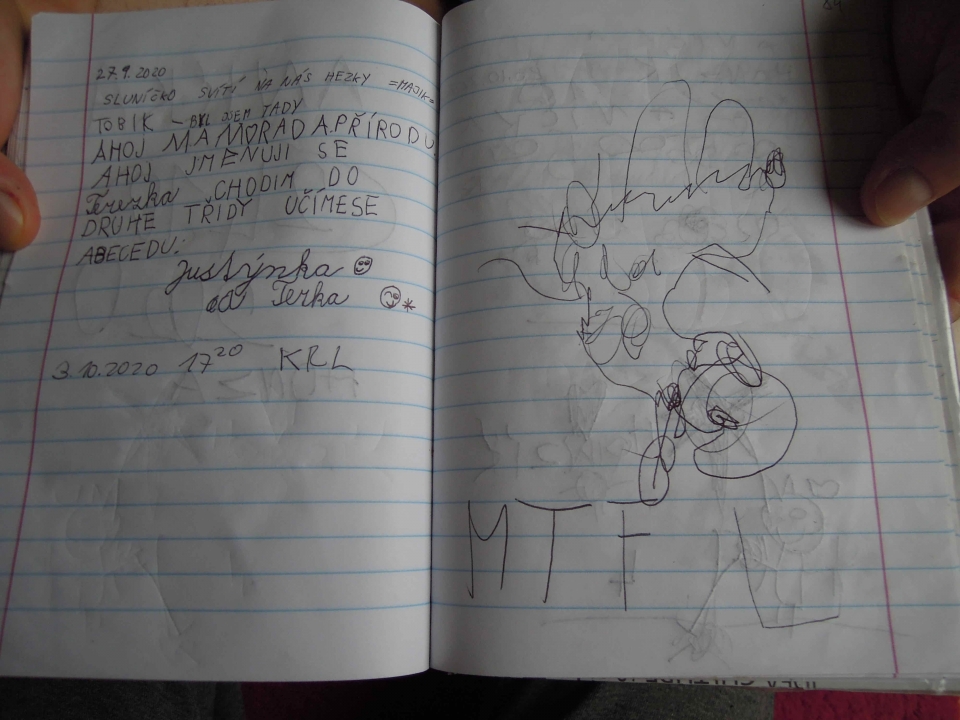 27.9.2020
SLUNÍČKO SVÍTÍ NA NÁS HEZKY =MAJIK=
TOBIK - BYL JSEM TADY
AHOJ MAMORADAPŘÍRODU
AHOJ JMENUJI SE
Terezka CHODIM DO
DRUHE TŘIDY UČÍMESE
ABECEDU.
Justýnka
Terka
3.10.2020 17²⁰ KRL
84
MTF